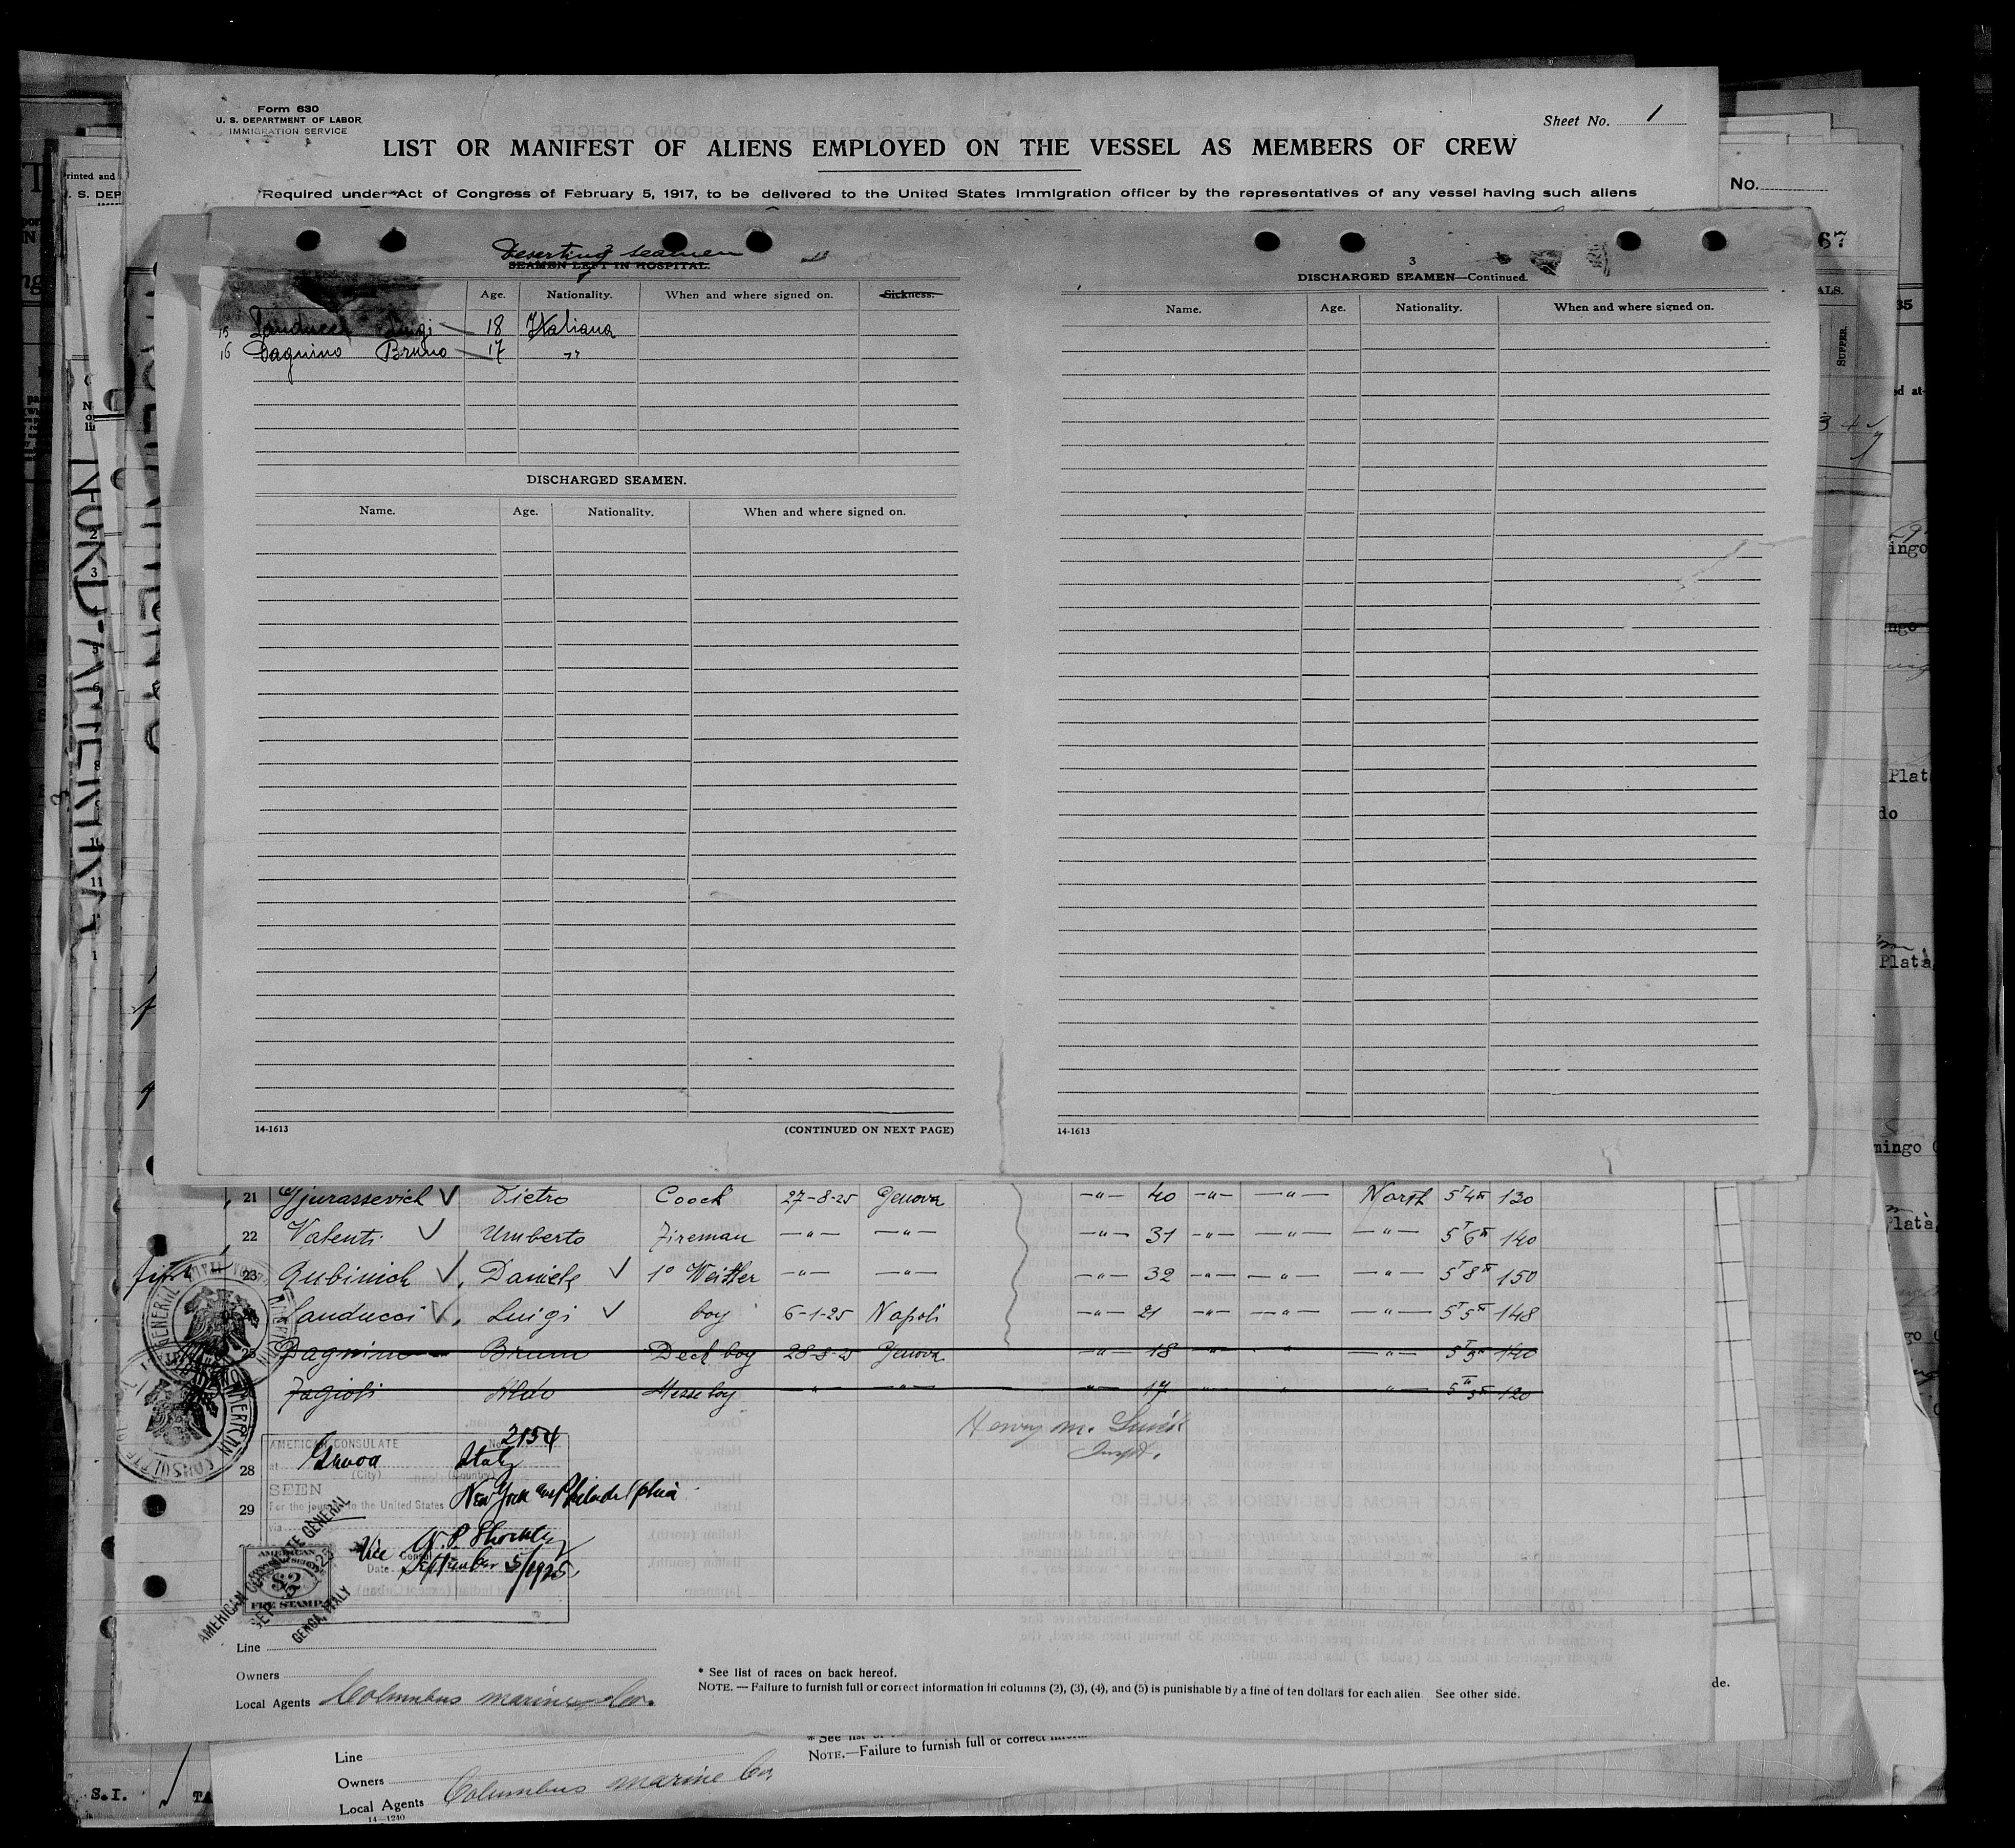 Form 630
U. S. DEPARTMENT OF LABOR
IMMIGRATION SERVICE
Sheet No. 1
LIST OR MANIFEST OF ALIENS EMPLOYED ON THE VESSEL AS MEMBERS OF CREW
Required under Act of Congress of February 5, 1917, to be delivered to the United States immigration officer by the representatives of any vessel having such aliens
No.
Deserting seamen
SEAMEN LEFT IN HOSPITAL.
Age. Nationality. When and where signed on. Sickness.
15 Landucci Luigi 18 Italiana
16 Dagnino Bruno 17 -"-
DISCHARGED SEAMEN.
Name. Age. Nationality. When and where signed on.
14-1613 (CONTINUED ON NEXT PAGE)
3
DISCHARGED SEAMEN—Continued.
Name. Age. Nationality. When and where signed on.
14-1613
21 Gjurassevich Pietro Coock 27-8-25 Genova -"- 40 -"- -"- North 5' 4" 130
22 Valenti Umberto Fireman -"- -"- -"- 31 -"- -"- -"- 5' 6" 140
23 Qubinich Daniele 1° Weitter -"- -"- -"- 32 -"- -"- -"- 5' 8" 150
Landucci Luigi boy 6-1-25 Napoli -"- 21 -"- -"- -"- 5' 5" 148
25 Dagnino Bruno Deck boy 28-8-25 Genova -"- 18 -"- -"- -"- 5' 3" 140
Fagioli Aldo Messe boy -"- -"- -"- 17 -"- -"- -"- 5' 5" 120
Henry M.
Inspt.
AMERICAN CONSULATE No. 2154
at Genoa Italy
(City) (Country)
28
SEEN
For the journey to the United States New York and Philadelphia
29
via
Vice Consul
Date September 5/1925.
AMERICAN
$2
FEE STAMP
AMERICAN CONSULATE GENERAL
SEP 5 1925
GENOA, ITALY
Line
Owners
Local Agents Columbus marine Co.
* See list of races on back hereof.
NOTE. — Failure to furnish full or correct information in columns (2), (3), (4), and (5) is punishable by a fine of ten dollars for each alien. See other side.
Line
Owners
Local Agents Columbus marine Co.
14—1240
NOTE.—Failure to furnish full or correct
S.I.